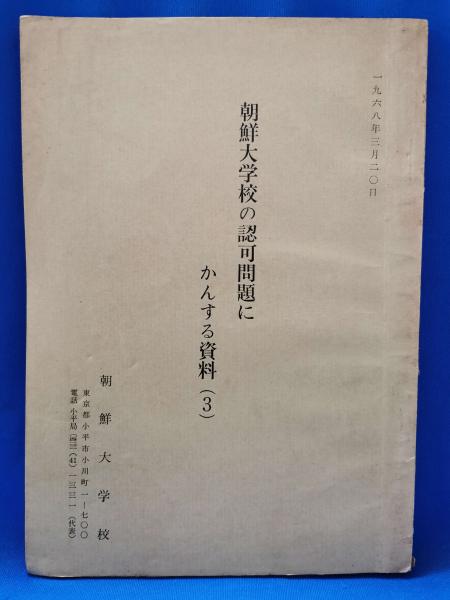 一九六八年三月二〇日
朝鮮大学校の認可問題に
かんする資料（3）
朝鮮大学校
東京都小平市小川町一ー七〇〇
電話 小平局〔四三〕(41) 一三三一（代表）